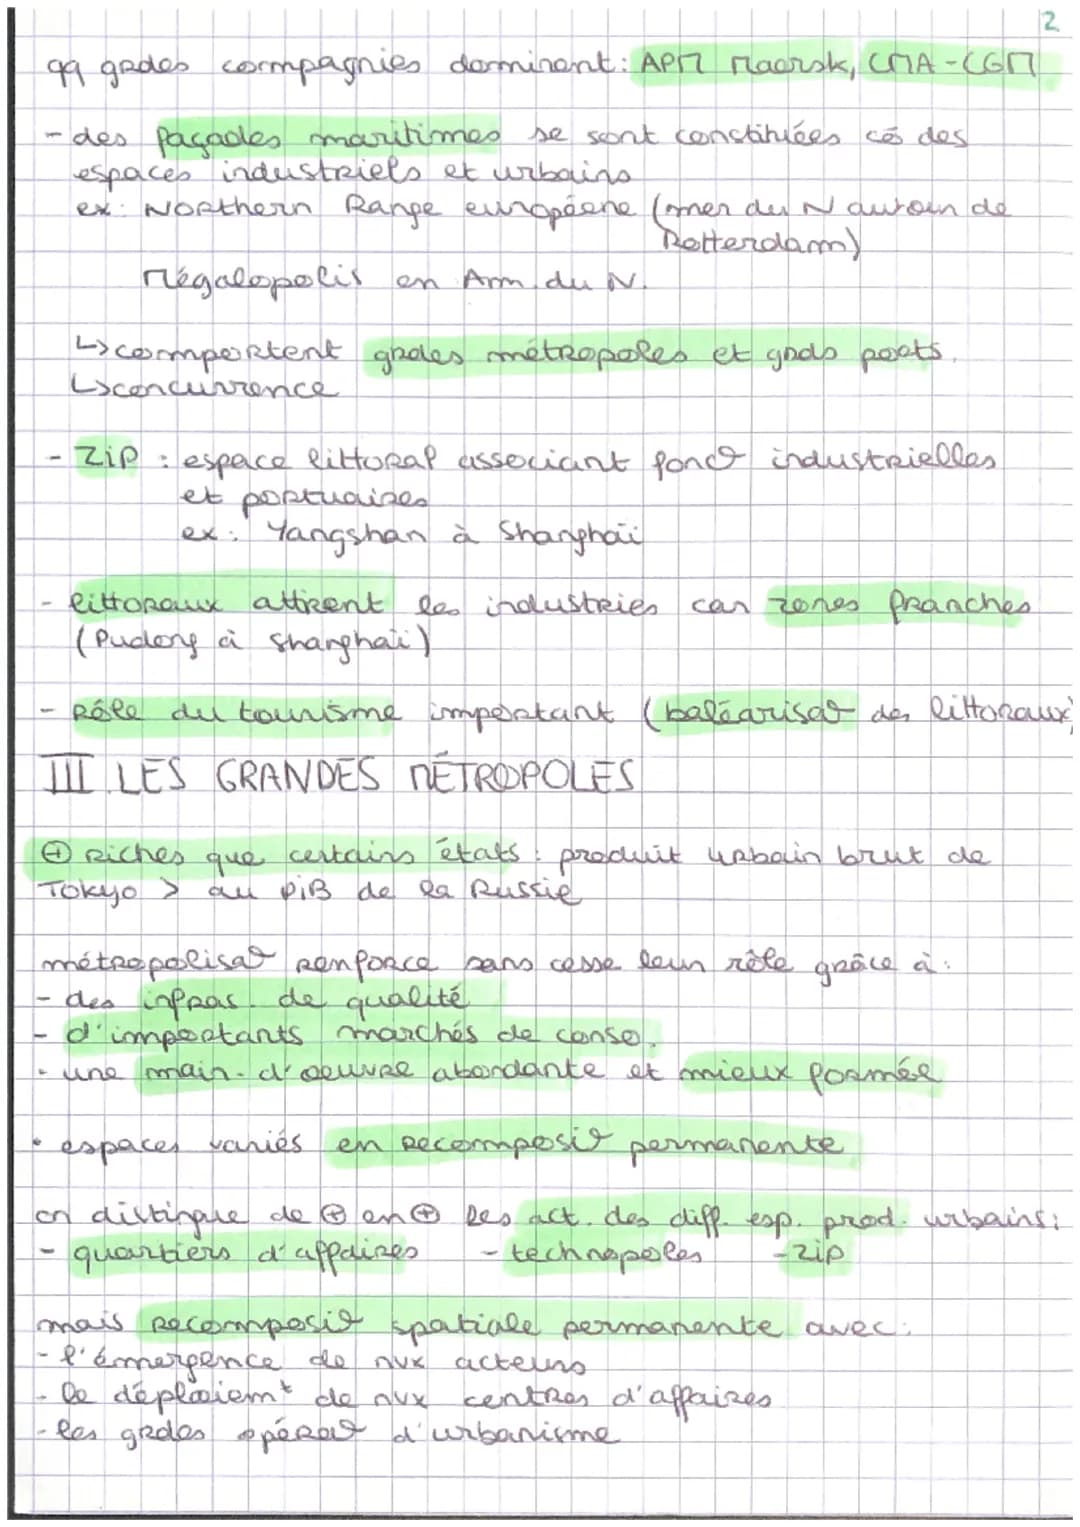 2
qq grdes compagnies dominent : APM Maersk, CMA-CGM
- des façades maritimes se sont constituées cô des
espaces industriels et urbains
ex : Northern Range européene (mer du N autour de
Rotterdam)
Mégalopolis en Am. du N.
↳ comportent grdes métropoles et grds ports.
↳ concurrence
- ZiP : espace littoral associant fonct° industrielles
et portuaires
ex : Yangshan à Shanghaï
- littoraux attirent les industries car zones franches
(Pudong à Shanghaï)
- Rôle du tourisme important (baléarisat° des littoraux)
III. LES GRANDES MÉTROPOLES
⊕ Riches que certains états : produit urbain brut de
Tokyo > au PiB de la Russie
métropolisat° renforce sans cesse leur rôle grâce à :
- des infras. de qualité
- d'importants marchés de conso.
- une main-d'oeuvre abondante et mieux formée
• espaces variés en recomposit° permanente
on distingue de ⊕ en ⊕ les act. des diff. esp. prod. urbains :
- quartiers d'affaires - technopoles - zip
mais recomposit° spatiale permanente avec :
- l'émergence de nvx acteurs
- le déploiemt de nvx centres d'affaires
- les grdes opérat° d'urbanisme